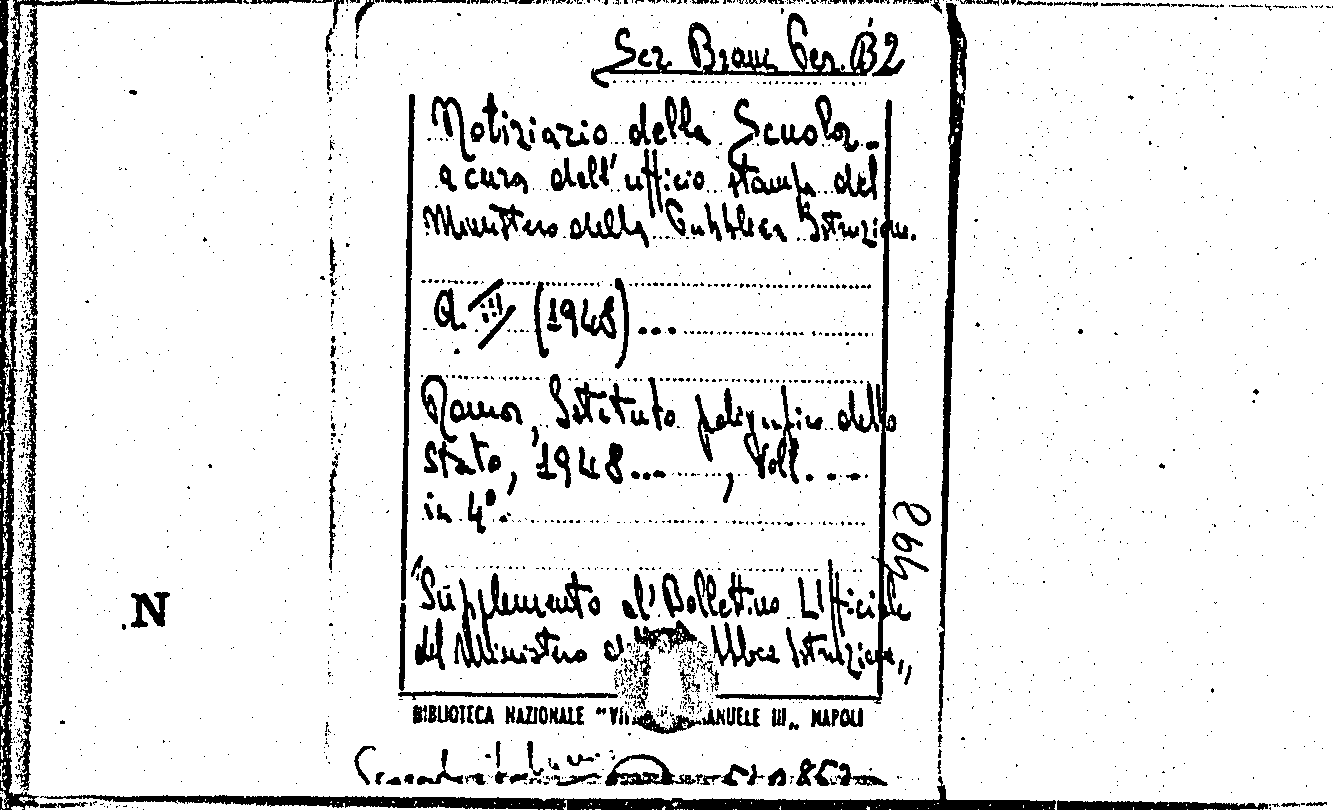 Sez. Branc. Per. B2
Notiziario della Scuola.
a cura dell'ufficio stampa del
Ministero della Pubblica Istruzione.
A. (1948)...
Roma, Istituto poligrafico dello
Stato, 1948... , Voll. ...
in 4°.
"Supplemento al Bollettino Ufficiale
del Ministero Istruzione"
N
BIBLIOTECA NAZIONALE " NAPOLI